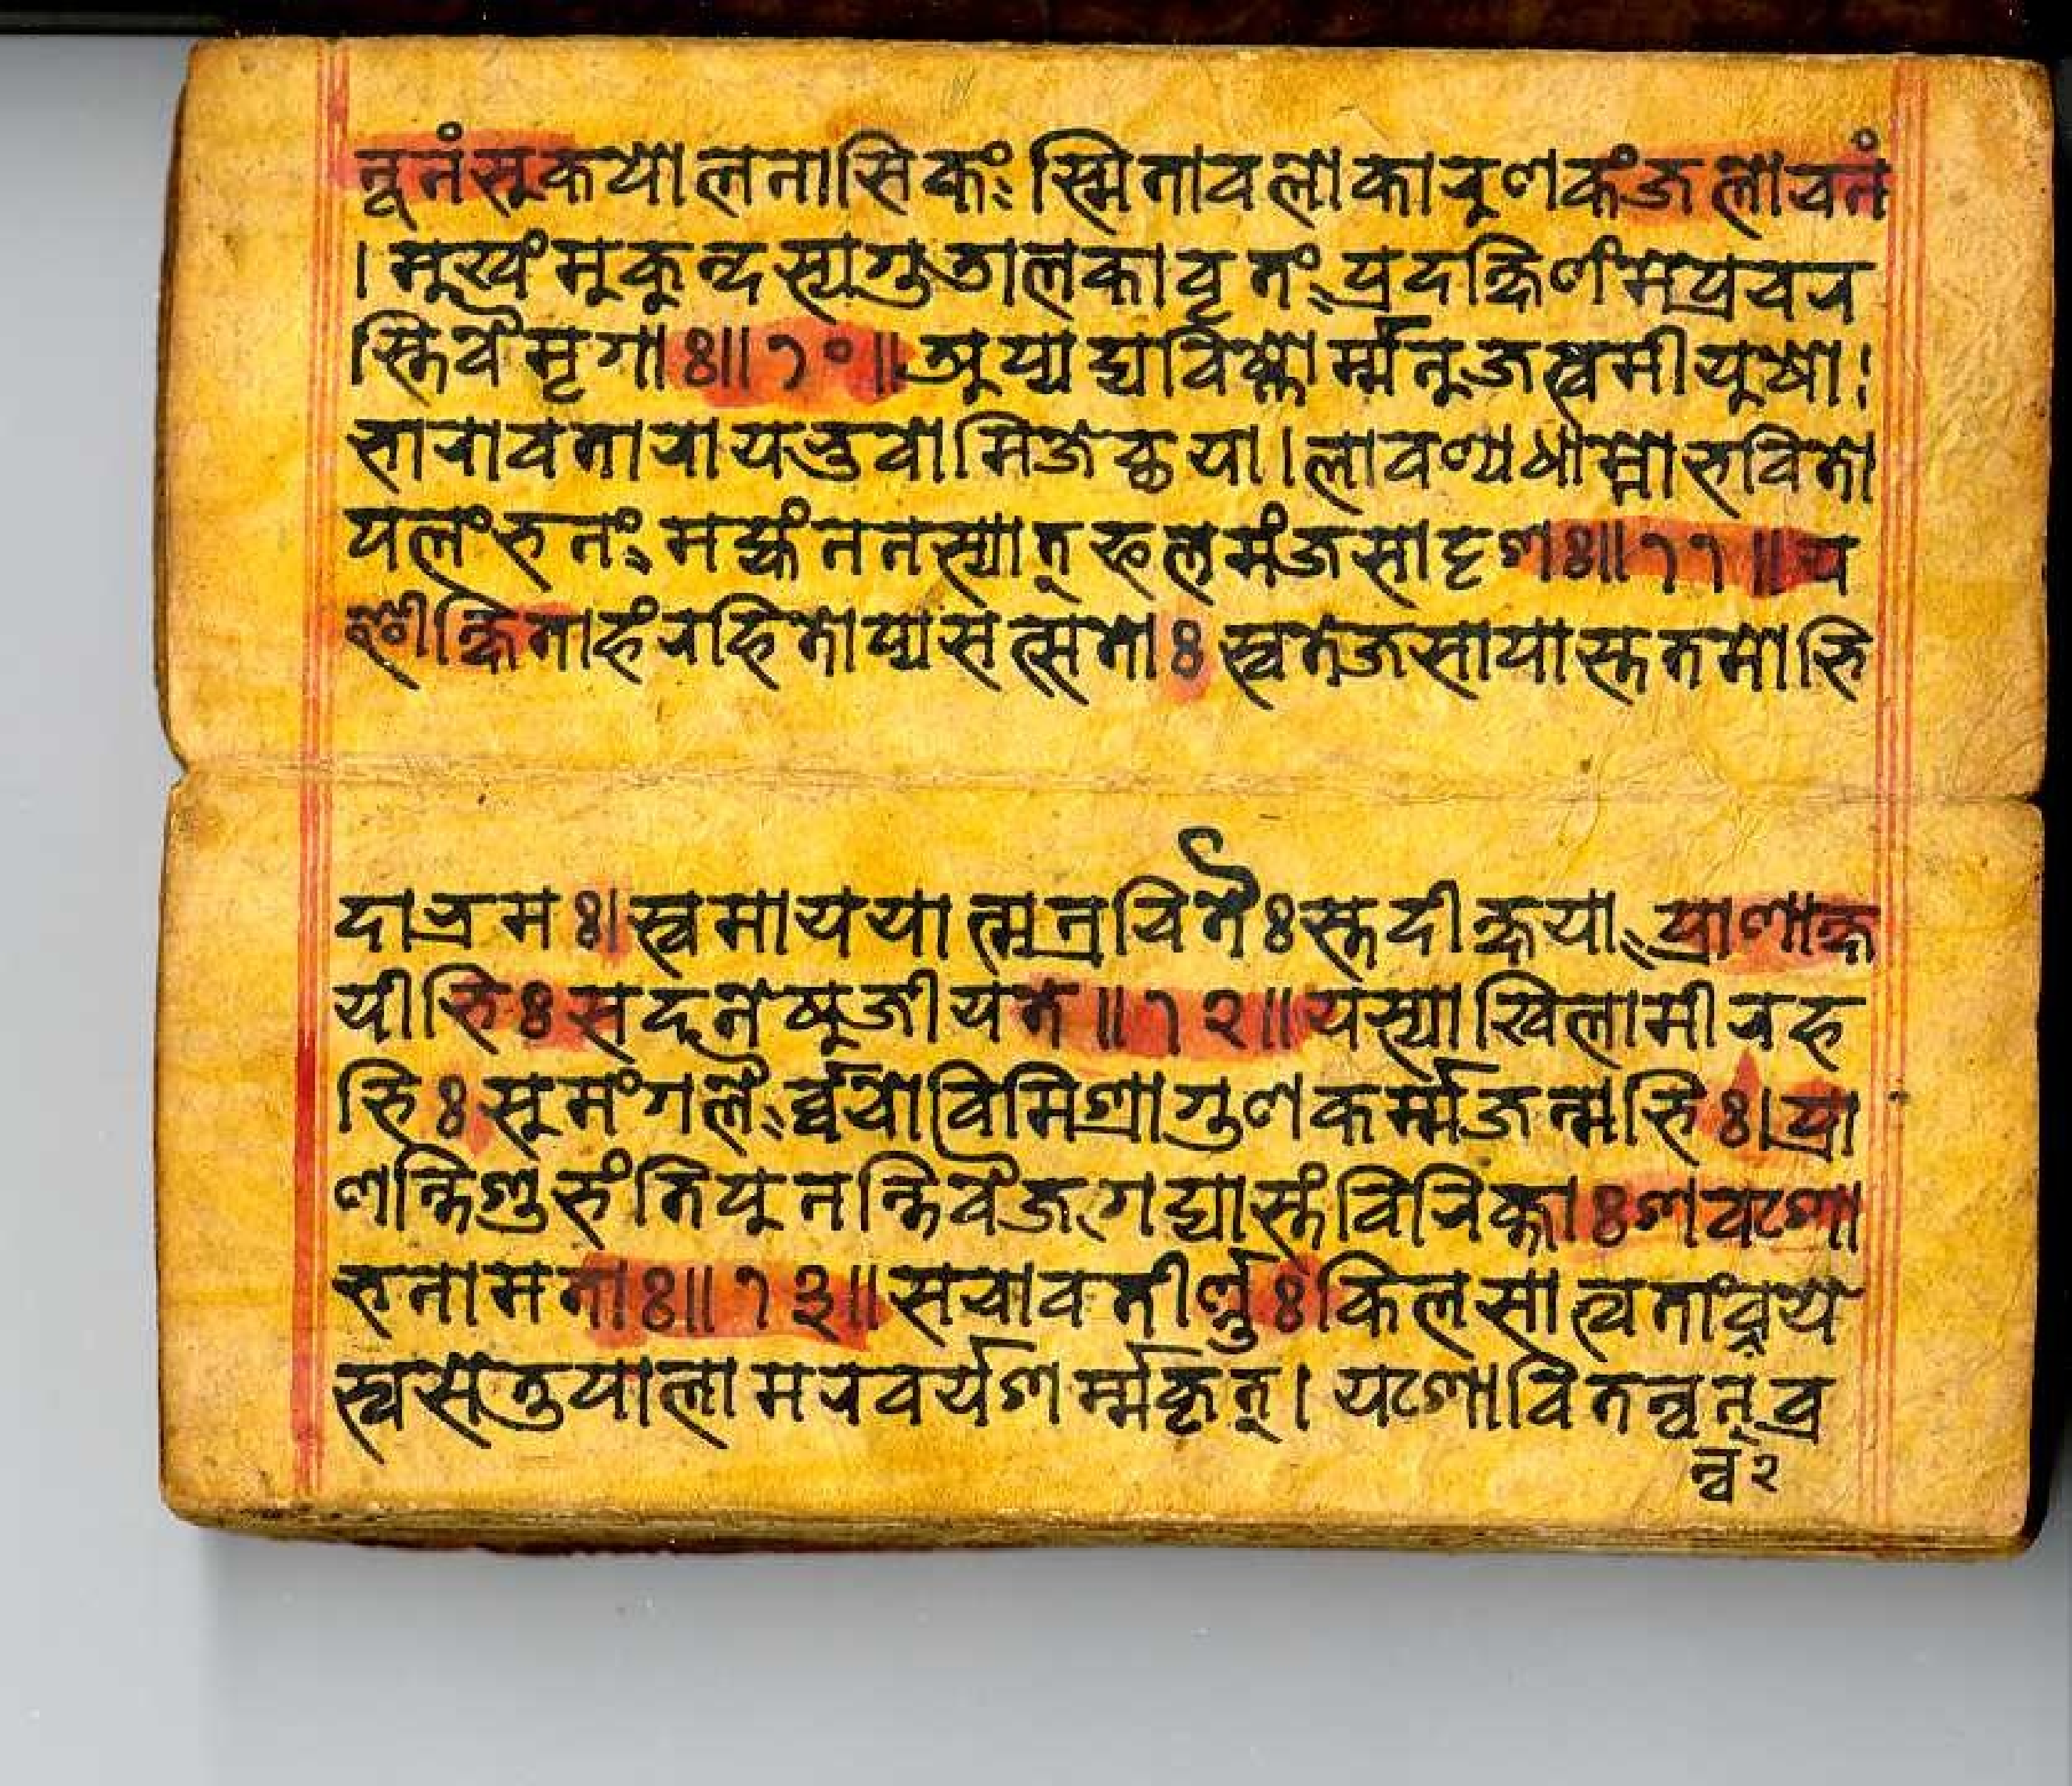 नूनंसुकपोलनासिकं स्मितावलोकारुणकंजलोचनं
।मुखंमुकुन्दस्यगुडालकावृतं प्रदक्षिणंमेप्रचर
न्तिवैमृगाः॥१०॥अप्यद्यविष्णोर्म्मनुजत्वमीयुषो
भारावतारायभुवोनिजेच्छया।लावण्यधाम्नोभवितो
पलंभनं मह्यंननस्यात्फलमंजसादृशः॥११॥य
ईक्षिताहंरहितोप्यसत्सतोः स्वतेजसापास्ततमोभि
दाभ्रमः।स्वमाययात्मन्रचितैःस्तदीक्षया प्राणाक्ष
धीभिः सदनेषुजीयते॥१२॥यस्याखिलामीवह
भिःसुमंगलैर्व्वचोविमिश्रागुणकर्म्मजन्मभिः।प्रा
णन्तिशुभंतिपुनन्तिवैजगद्यास्तंविरिक्ताःशवशो
भनामताः॥१३॥सचावतीर्णुःकिलसात्वतांव्रये
स्वसेतुपालामरवर्यशर्म्मकृत्।यशोवितन्वन्व्र
न्व२